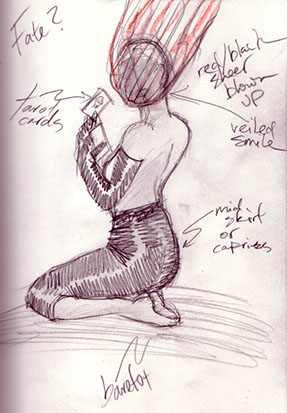 Fate?
red/black
sheer
blown
up
tarot
cards
veiled
smile
mid
skirt
or
capries
barefoot